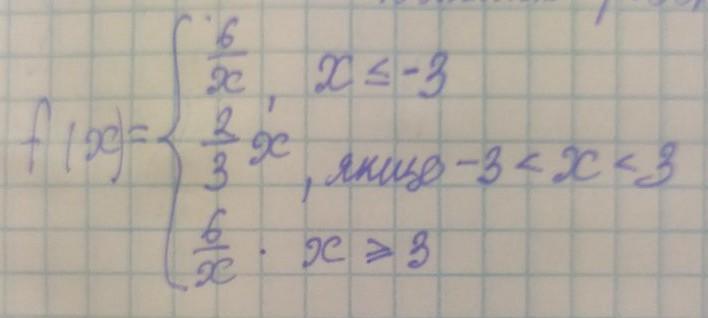 f(x)= { 6/x, x ≤ -3
2/3 x, якщо -3 < x < 3
6/x . x ≥ 3